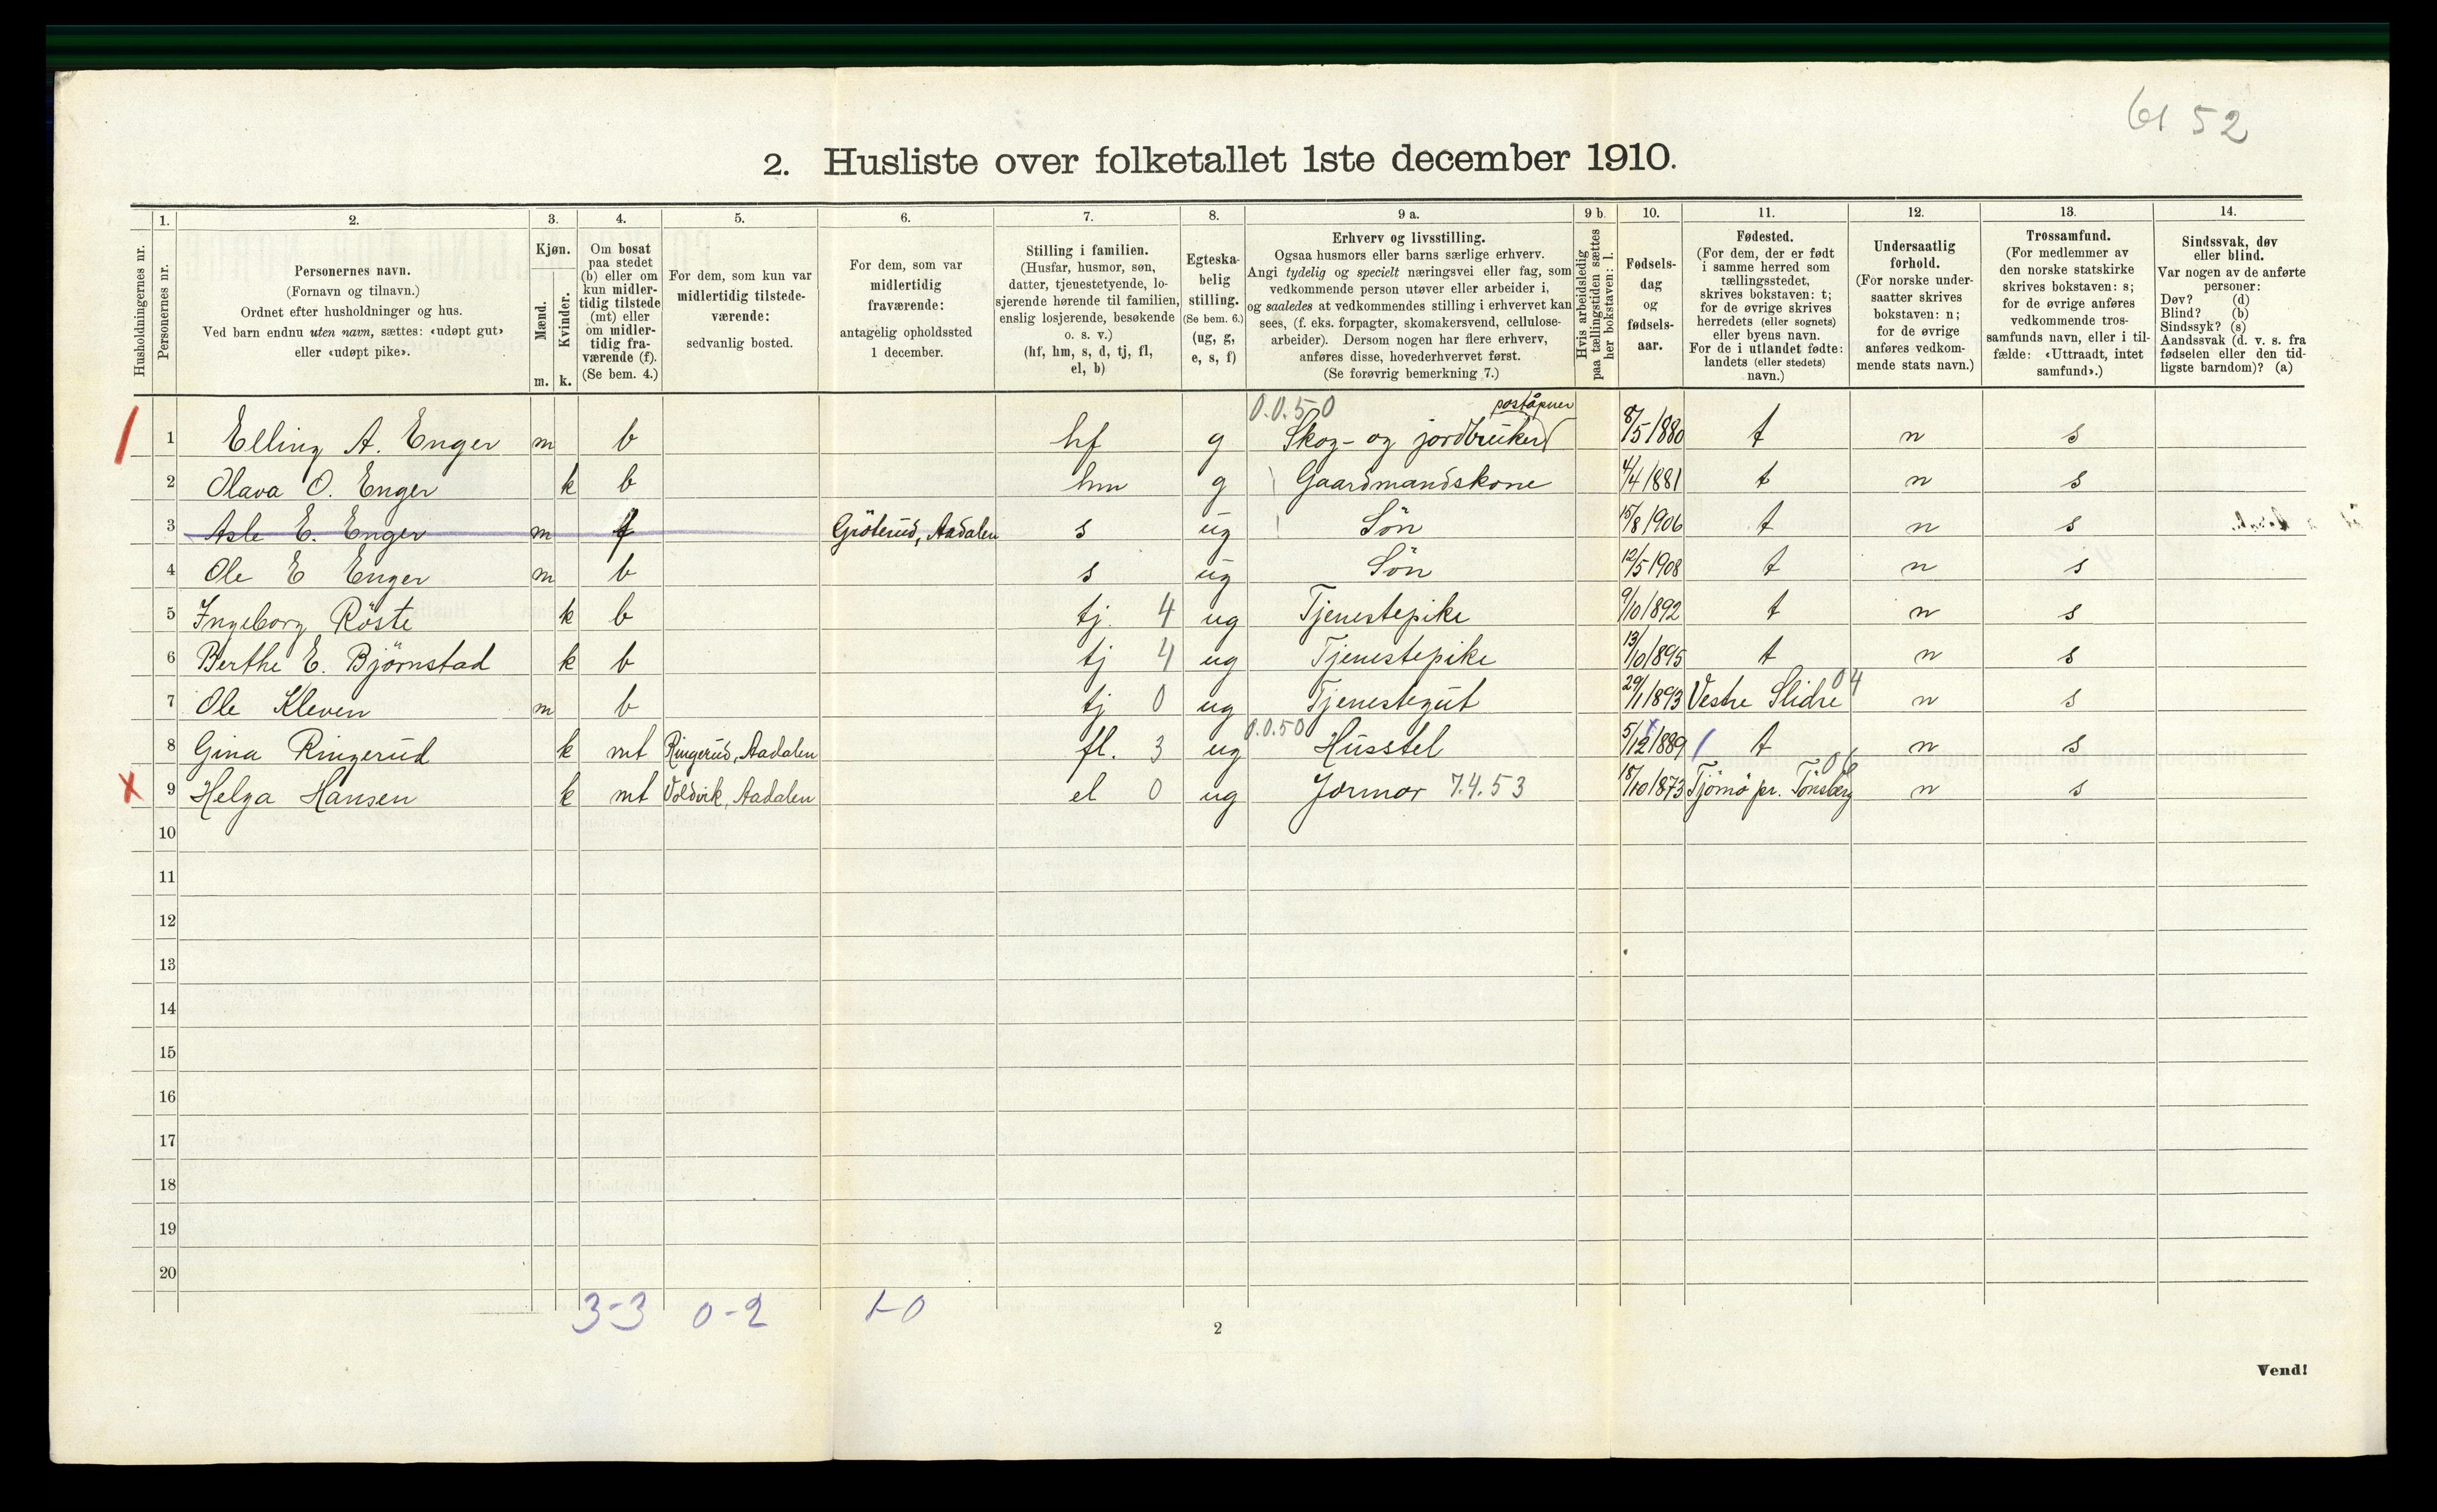 61 52
2. Husliste over folketallet 1ste december 1910.
Husholdningernes nr.
1. Personernes nr.
2. Personernes navn.
(Fornavn og tilnavn.)
Ordnet efter husholdninger og hus.
Ved barn endnu uten navn, sættes: «udøpt gut»
eller «udøpt pike».
3. Kjøn.
Mænd. m.
Kvinder. k.
4. Om bosat
paa stedet
(b) eller om
kun midler-
tidig tilstede
(mt) eller
om midler-
tidig fra-
værende (f).
(Se bem. 4.)
5. For dem, som kun var
midlertidig tilstede-
værende:
sedvanlig bosted.
6. For dem, som var
midlertidig
fraværende:
antagelig opholdssted
1 december.
7. Stilling i familien.
(Husfar, husmor, søn,
datter, tjenestetyende, lo-
sjerende hørende til familien,
enslig losjerende, besøkende
o. s. v.)
(hf, hm, s, d, tj, fl,
el, b)
8. Egteska-
belig
stilling.
(Se bem. 6.)
(ug, g,
e, s, f)
9 a. Erhverv og livsstilling.
Ogsaa husmors eller barns særlige erhverv.
Angi tydelig og specielt næringsvei eller fag, som
vedkommende person utøver eller arbeider i,
og saaledes at vedkommendes stilling i erhvervet kan
sees, (f. eks. forpagter, skomakersvend, cellulose-
arbeider). Dersom nogen har flere erhverv,
anføres disse, hovederhvervet først.
(Se forøvrig bemerkning 7.)
9 b. Hvis arbeidsledig
paa tællingstiden sættes
her bokstaven: l.
10. Fødsels-
dag
og
fødsels-
aar.
11. Fødested.
(For dem, der er født
i samme herred som
tællingsstedet,
skrives bokstaven: t;
for de øvrige skrives
herredets (eller sognets)
eller byens navn.
For de i utlandet fødte:
landets (eller stedets)
navn.)
12. Undersaatlig
forhold.
(For norske under-
saatter skrives
bokstaven: n;
for de øvrige
anføres vedkom-
mende stats navn.)
13. Trossamfund.
(For medlemmer av
den norske statskirke
skrives bokstaven: s;
for de øvrige anføres
vedkommende tros-
samfunds navn, eller i til-
fælde: «Uttraadt, intet
samfund».)
14. Sindssvak, døv
eller blind.
Var nogen av de anførte
personer:
Døv? (d)
Blind? (b)
Sindssyk? (s)
Aandssvak (d. v. s. fra
fødselen eller den tid-
ligste barndom)? (a)
0.0.50 poståpner
1 Elling A. Enger m b hf g Skog- og jordbruker 8/5 1880 t n s
2 Olava O. Enger k b hm g Gaardmandskone 4/4 1881 t n s
3 Asle E. Enger m f Gröterud, Aadalen s ug Sön 15/8 1906 t n s
4 Ole E Enger m b s ug Sön 12/5 1908 t n s
5 Ingeborg Röste k b tj. 4 ug Tjenestepike 9/10 1892 t n s
6 Berthe E. Björnstad k b tj 4 ug Tjenestepike 13/10 1895 t n s
7 Ole Kleven m b tj 0 ug Tjenestegut 29/1 1893 Vestre Slidre 04 n s
8 Gina Ringerud k mt Ringerud, Aadalen fl. 3 ug 0.0.50 Husstel 5/12 1889 t n s
x 9 Helga Hansen k mt Voldvik, Aadalen el 0 ug Jormor 7.4.53 18/10 1873 Tjömö pr. Tönsberg 06 n s
10
11
12
13
14
15
16
17
18
19
20
3-3 0-2 1-0
2
Vend!